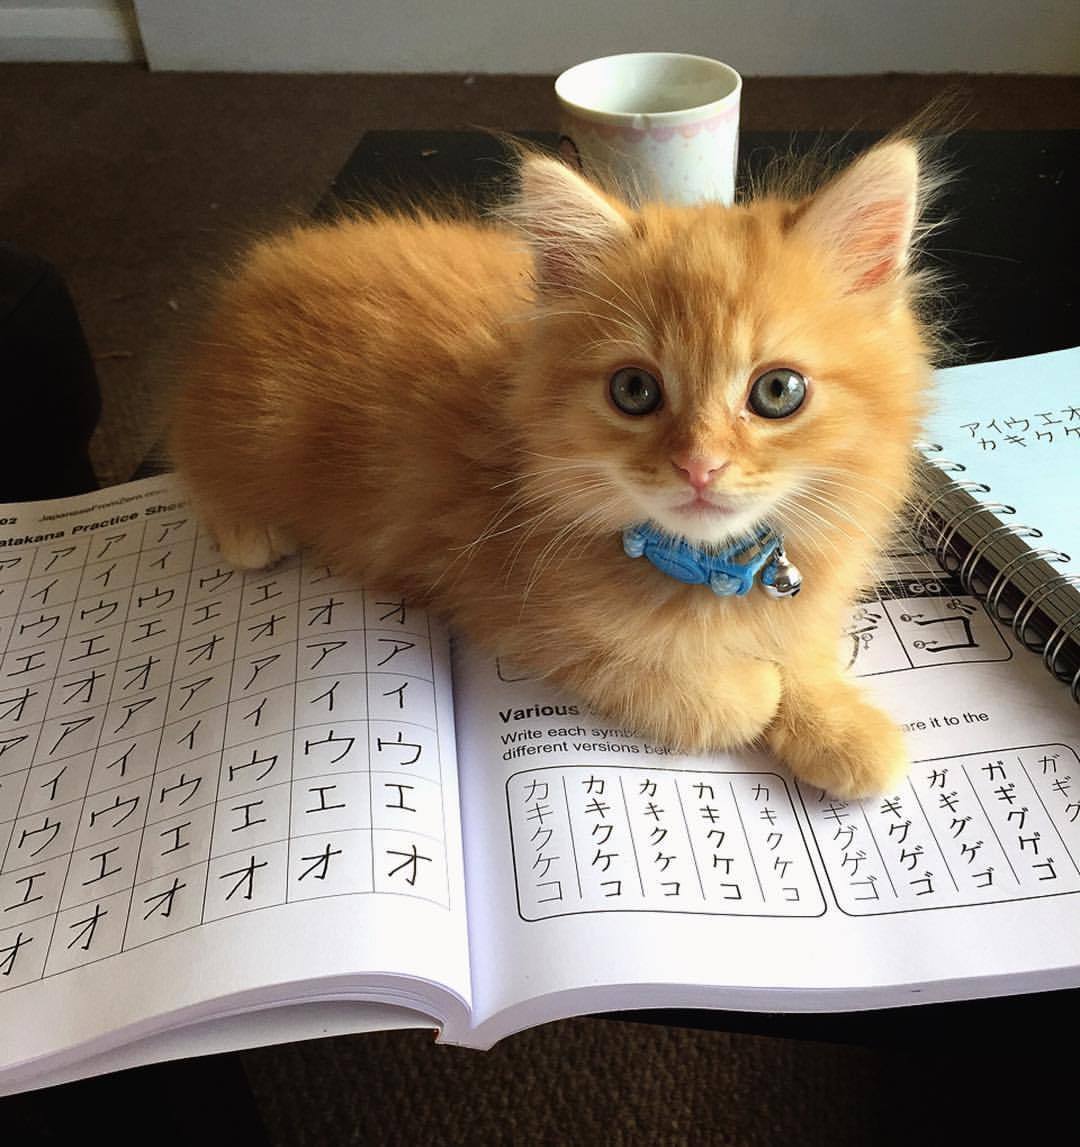 02 JapaneseFromZero.co
atakana Practice Shee
ア ア ア ア
イ イ イ
ウ ウ ウ ウ
エ エ エ エ エ
オ オ オ オ オ オ オ
ア ア ア ア ア ア ア
イ イ イ イ イ イ
ウ ウ ウ ウ ウ ウ
エ エ エ エ エ エ
オ オ オ オ オ オ
GO
ゴ
Various
Write each symbo are it to the
different versions below
カキクケコ
カキクケコ
カキクケコ
カキクケコ
カキクケコ
ガギグゲゴ
ギグゲゴ
ガギグゲゴ
ガギグゲゴ
ガギグ
アイウエオ
カキクケ